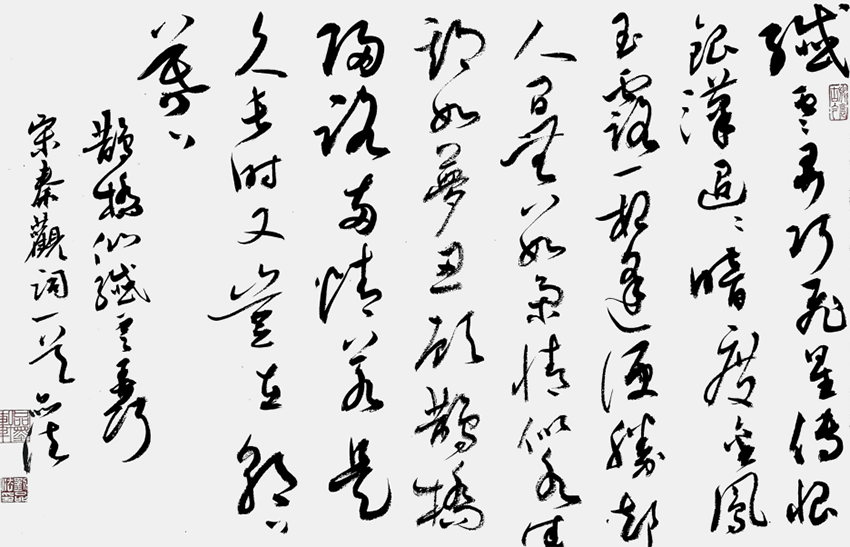 纖雲弄巧飛星傳恨
銀漢迢々暗度金風
玉露一相逢便勝卻
人間無數柔情似水佳
期如夢忍顧鵲橋
歸路兩情若是
久長時又豈在朝々
暮々
鵲橋仙纖雲弄巧
宋秦觀詞一首